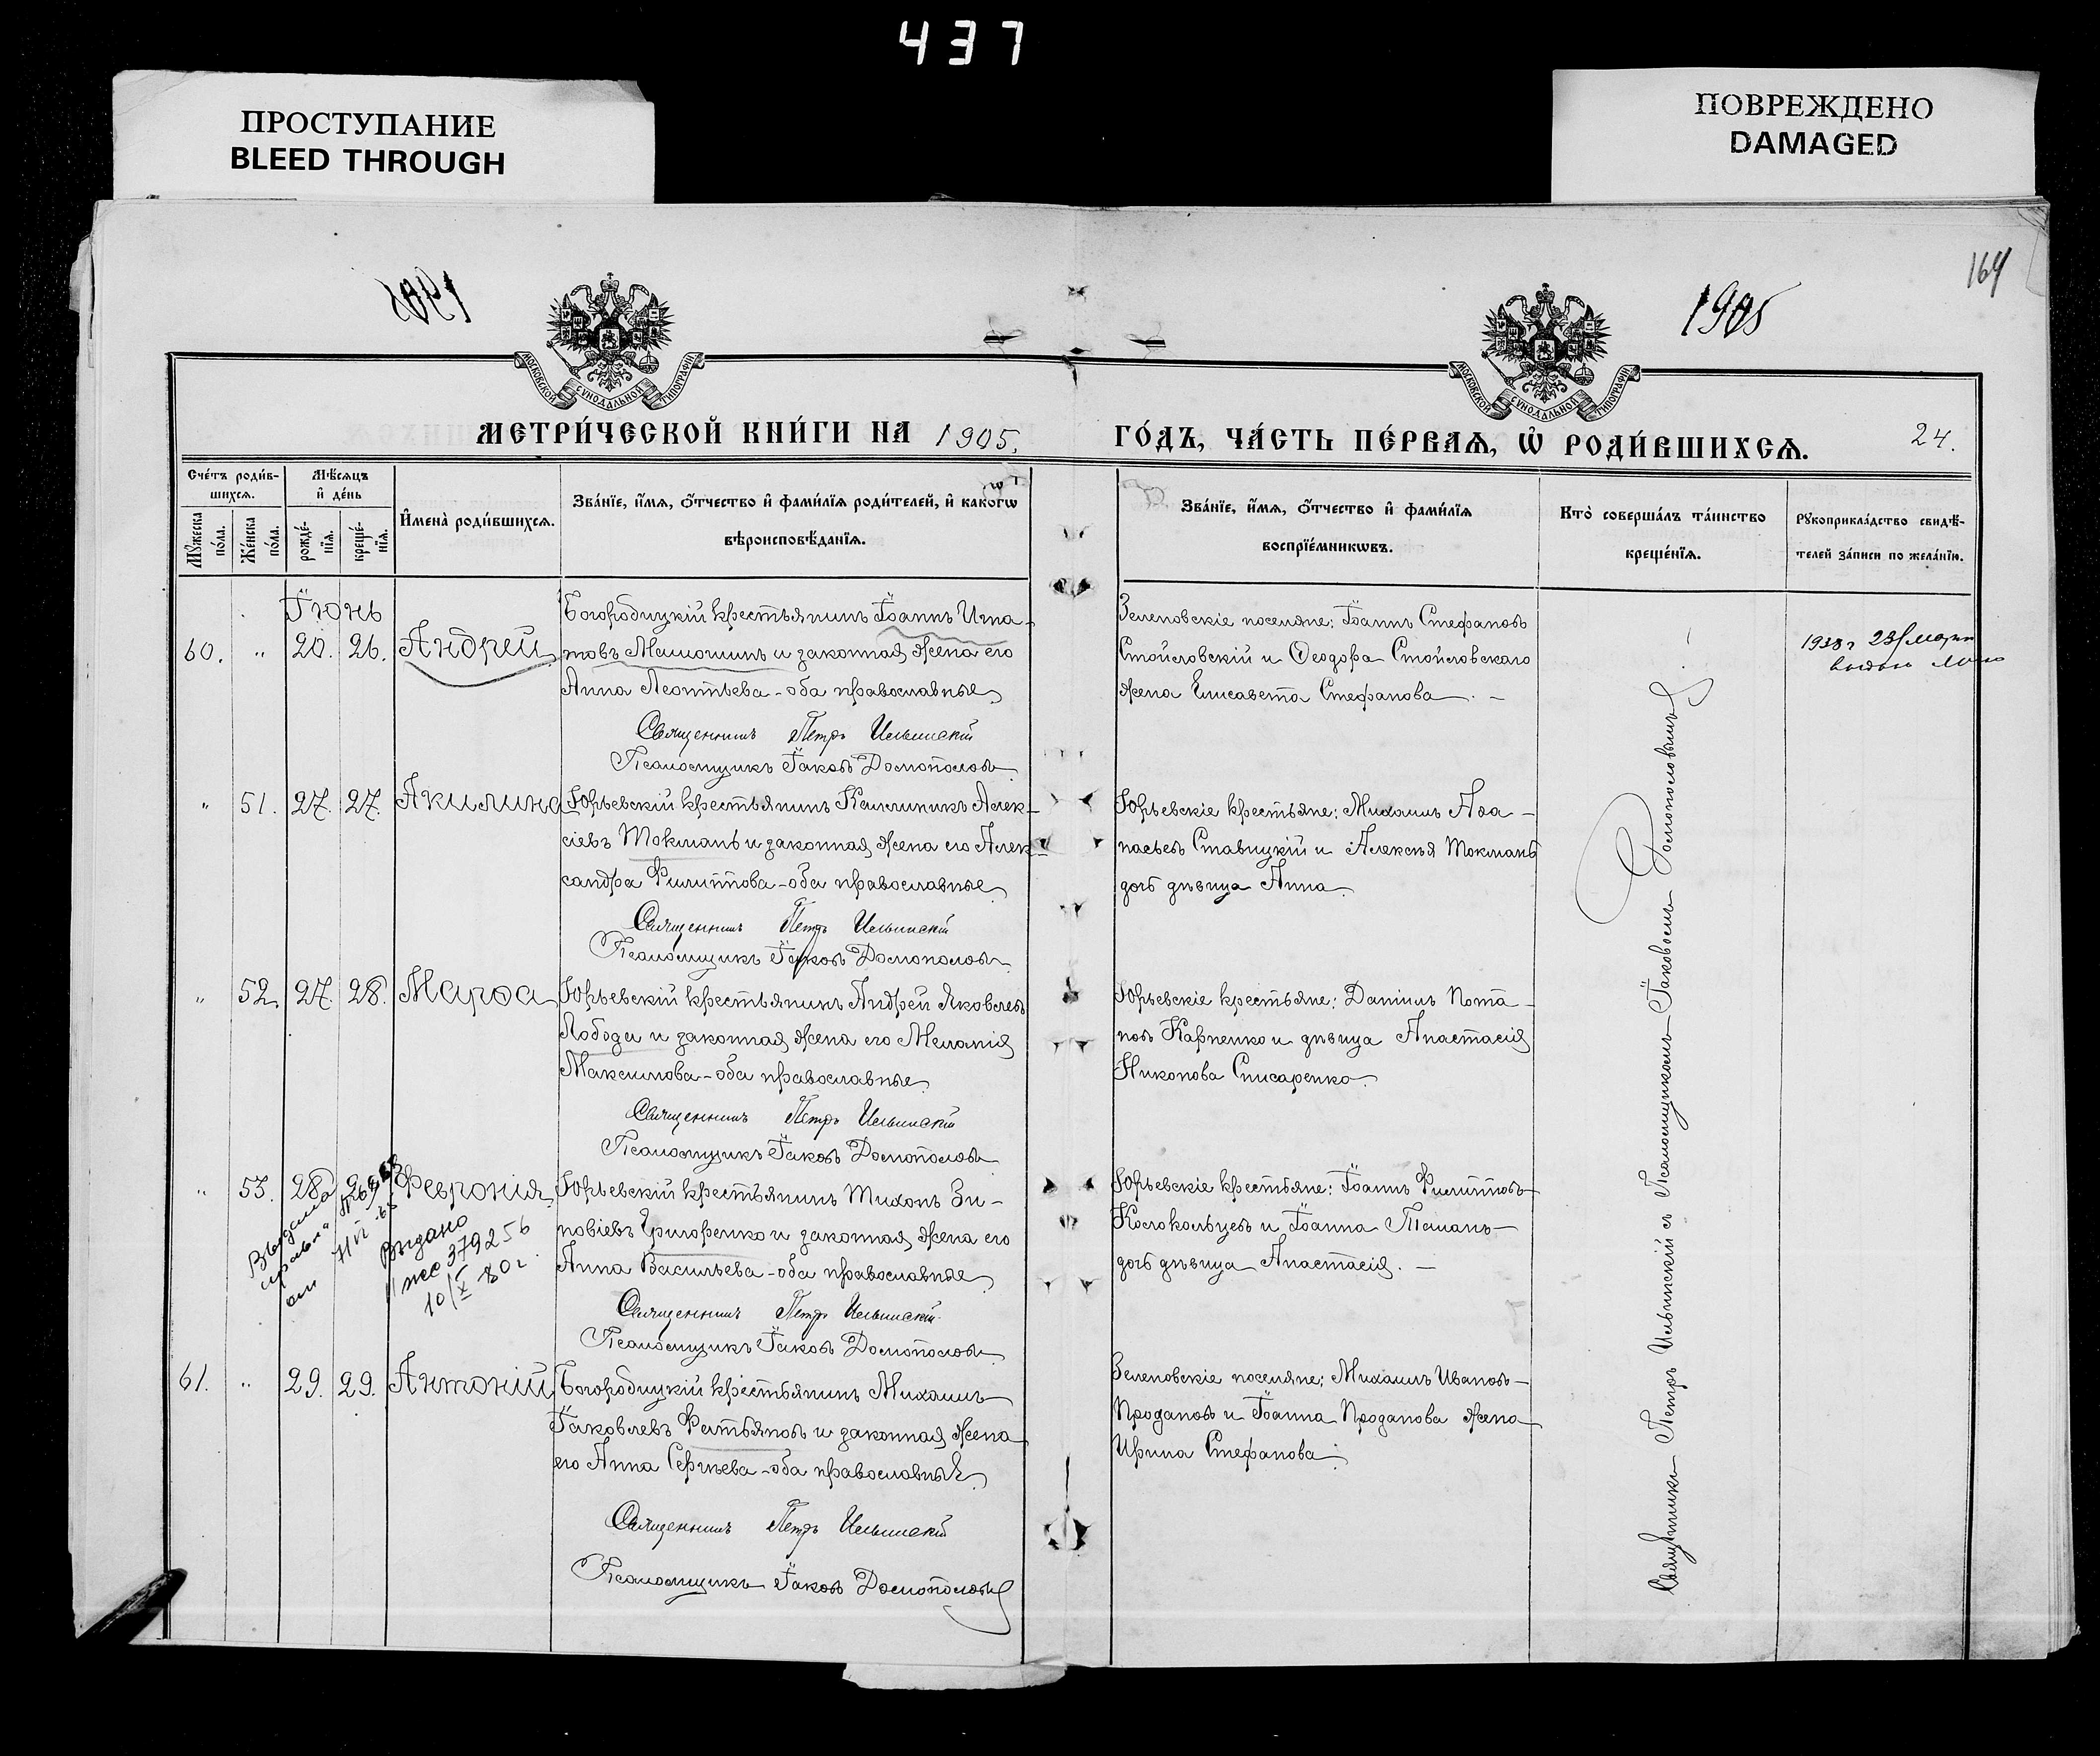 437
ПРОСТУПАНИЕ
BLEED THROUGH
ПОВРЕЖДЕНО
DAMAGED
164
1905
1905
МОСКОВСКОЙ СѴНОДАЛЬНОЙ ТИПОГРАФІИ
МОСКОВСКОЙ СѴНОДАЛЬНОЙ ТИПОГРАФІИ
МЕТРИ́ЧЕСКОЙ КНИ́ГИ НА 1905.
ГО́ДЪ, ЧА́СТЬ ПЕ́РВАѦ, Ѡ҆ РОДИ́ВШИХСѦ.
24.
Сче́тъ роди́в-
шихсѧ.
Мꙋ́жеска по́ла.
Же́нска по́ла.
Мѣ́сѧцъ
и҆ де́нь
рожде́-
нїѧ.
креще́-
нїѧ.
И҆мена̀ роди́вшихсѧ.
Зва́нїе, и҆́мѧ, ѻ҆́тчество и҆ фами́лїѧ роди́телей, и҆ како́гѡ
вѣроисповѣ́данїѧ.
Зва́нїе, и҆́мѧ, ѻ҆́тчество и҆ фами́лїѧ
воспрїе́мникѡвъ.
Кто̀ соверша́лъ та́инство
креще́нїѧ.
Рꙋкоприкла́дство свидѣ́-
телей за́писи по жела́нїю.
Іюнь
60. " 20. 26. Андрей
Богородицкій крестьянинъ Іоаннъ Игна-
товъ Малюшинъ и законная жена его
Анна Леонтьева - оба православные
Священникъ Петръ Ильинскій
Псаломщикъ Іаковъ Домонолов
Зеленовскіе поселяне: Іоаннъ Стефановъ
Стойловскій и Ѳеодора Стойловскаго
жена Елисавета Стефанова. -
1938 г 23/марта
" 51. 27. 27. Акилина
Юрьевскій крестьянинъ Каллиникъ Алек-
сіевъ Токмань и законная жена его Алек-
сандра Филиппова - оба православные
Священникъ Петръ Ильинскій
Псаломщикъ Іаковъ Домонолов
Юрьевскіе крестьяне: Михаилъ Аѳа-
насьевъ Ставицкій и Алексѣя Токмань
дочь дѣвица Анна.
" 52. 27. 28. Марѳа
Юрьевскій крестьянинъ Андрей Яковлевъ
Лобода и законная жена его Меланія
Максимова - оба православные
Священникъ Петръ Ильинскій
Псаломщикъ Іаковъ Домонолов
Юрьевскіе крестьяне: Даніилъ Пота-
повъ Карпенко и дѣвица Анастасія
Никонова Списаренко.
" 53. 28. 29. Февронія
Юрьевскій крестьянинъ Тихонъ Зи-
новіевъ Григоренко и законная жена его
Анна Васильева - оба православные
Священникъ Петръ Ильинскій
Псаломщикъ Іаковъ Домонолов
Юрьевскіе крестьяне: Іоаннъ Филипповъ
Колокольцев и Іоанна
дочь дѣвица Анастасія. -
Выдано
379256
10/X 80 г.
61. " 29. 29. Антоній
Богородицкій крестьянинъ Михаилъ
Іаковлевъ Фатьяновъ и законная жена
его Анна Сергѣева - оба православные
Священникъ Петръ Ильинскій
Псаломщикъ Іаковъ Домонолов
Зеленовскіе поселяне: Михаилъ Ивановъ
Продановъ и Іоанна Проданова жена
Ирина Стефанова.
Священникъ Петръ Ильинскій съ Псаломщикомъ Іаковомъ